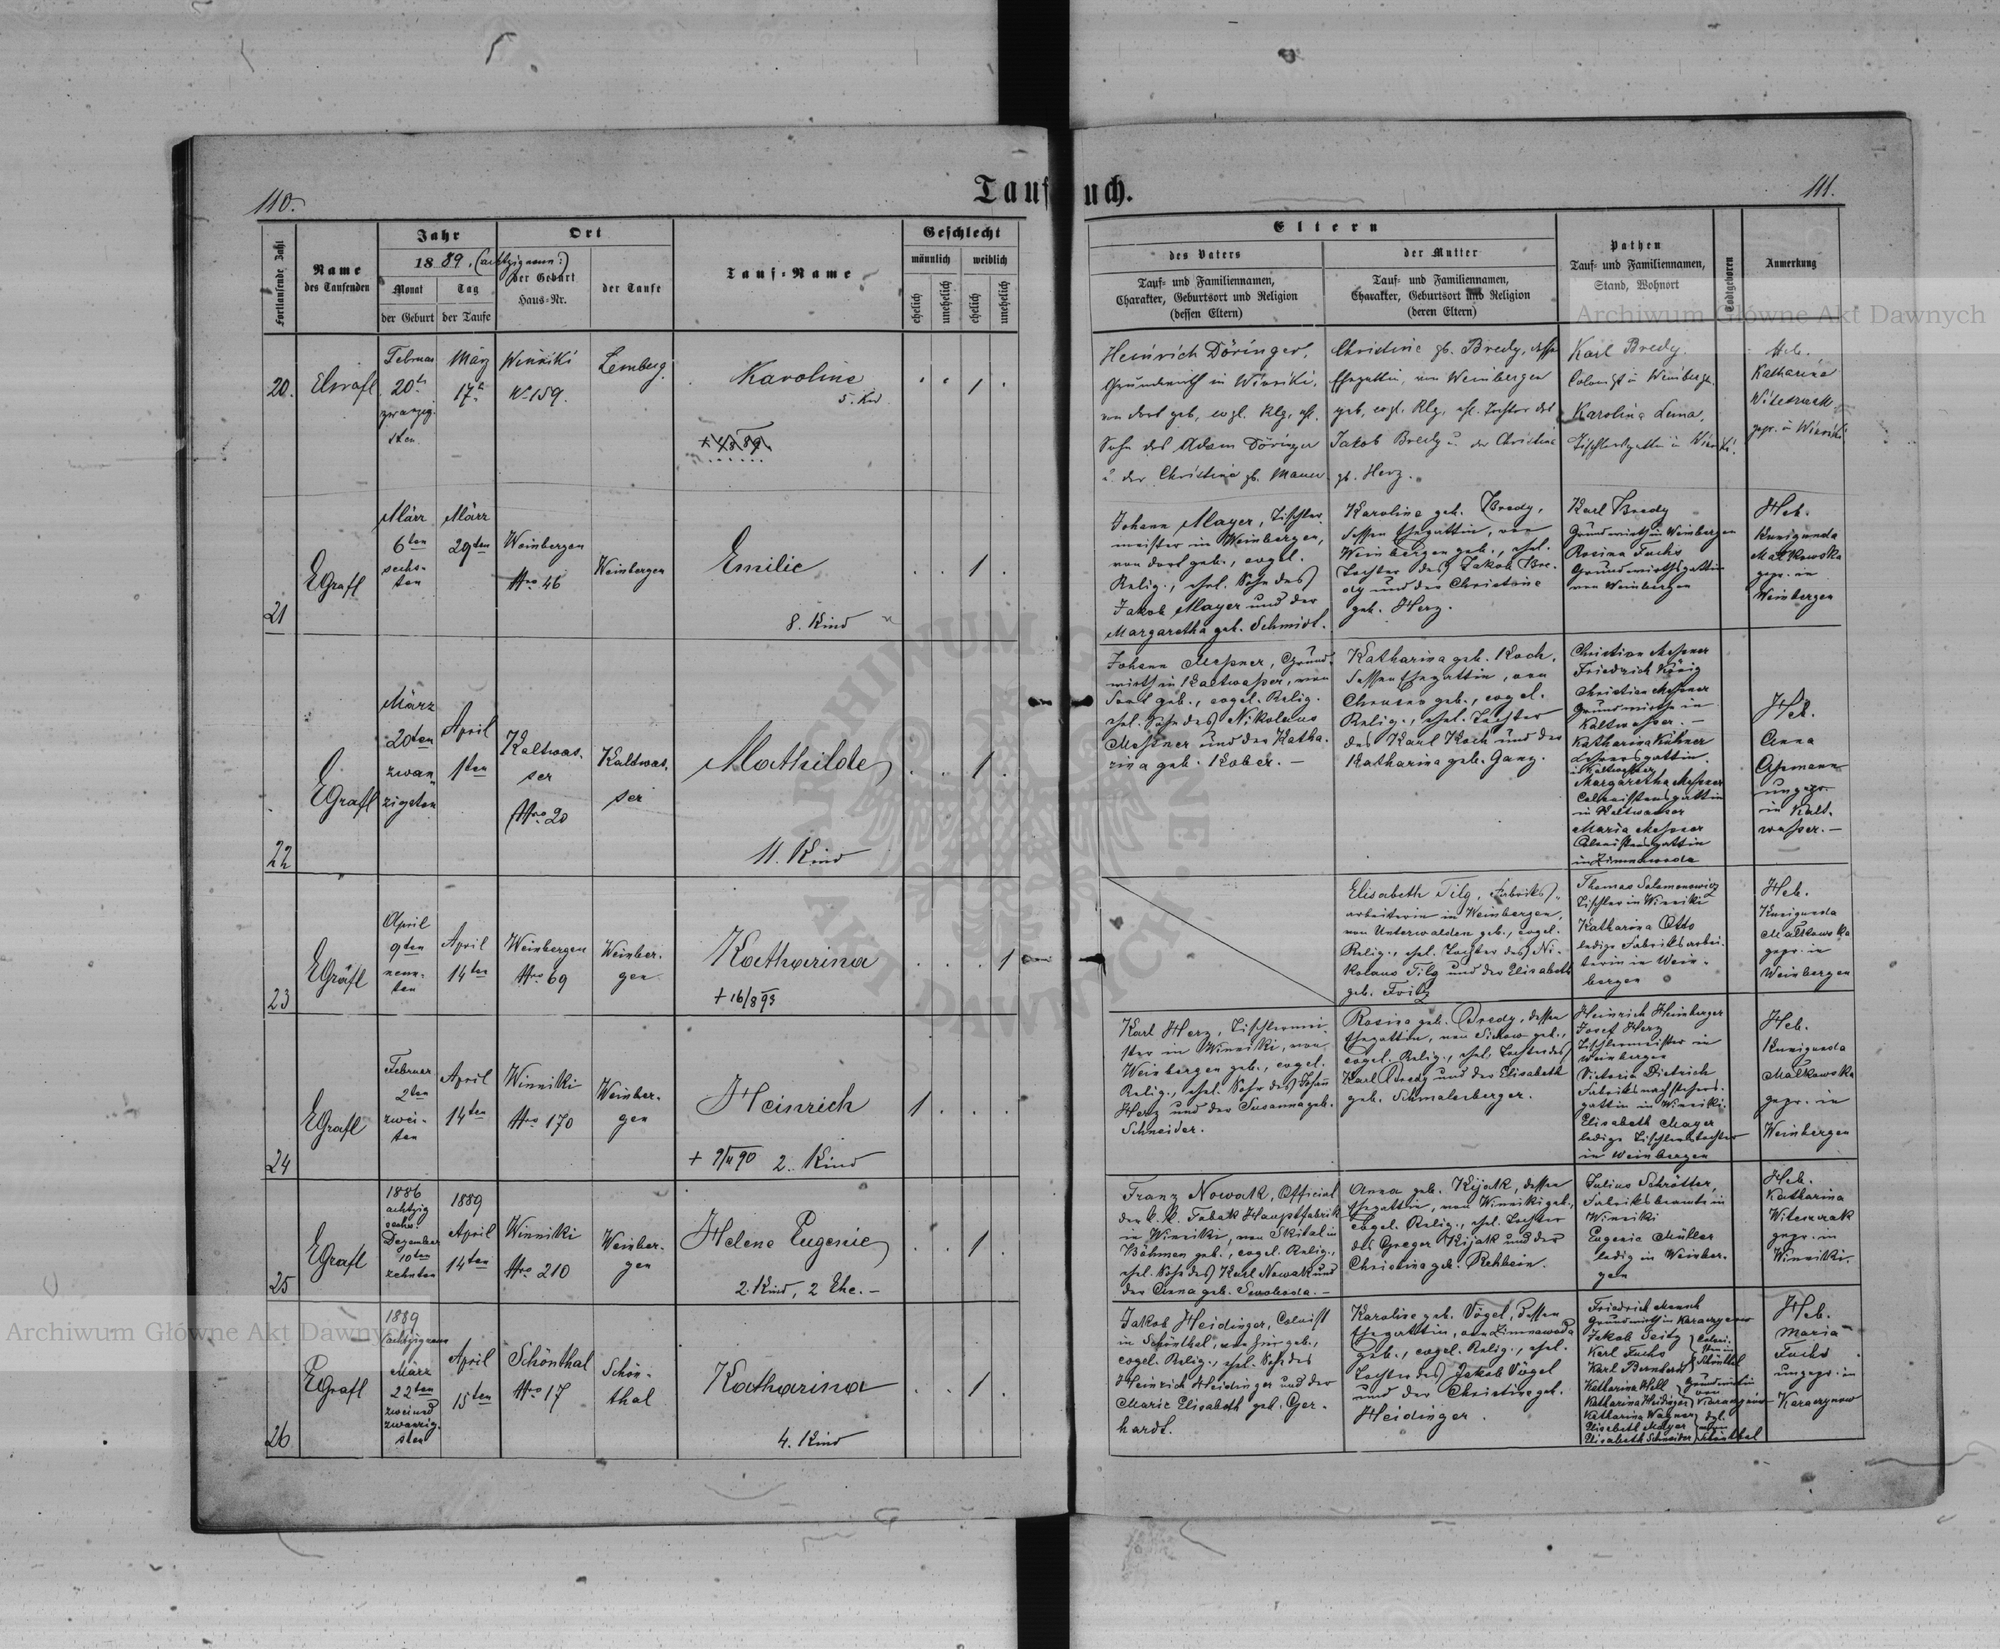 110.
Taufbuch.
111.
Fortlaufende Zahl
Name
des Taufenden
Jahr
1889. (achtzigneun:)
Monat
der Geburt
Tag
der Taufe
Ort
der Geburt
Haus-Nr.
der Taufe
Tauf-Name
Geschlecht
männlich
weiblich
ehelich
unehelich
ehelich
unehelich
Eltern
des Vaters
Tauf- und Familiennamen,
Charakter, Geburtsort und Religion
(dessen Eltern)
der Mutter
Tauf- und Familiennamen,
Charakter, Geburtsort und Religion
(deren Eltern)
Pathen
Tauf- und Familiennamen,
Stand, Wohnort
Todtgeboren
Anmerkung
20.
Februar
20t
zwanzig-
sten
März
17t
Winniki
No 159.
Lemberg.
Karoline
5. Kind
1
Heinrich Döringer,
Grundwirth in Winniki,
von dort geb, evgl. Rlg, ehl.
Sohn des Adam Döringer
u. der Christina gb. Mauer
Christine gb. Bredy, dessen
Ehegattin, von Weinbergen
geb, evgl. Rlg, ehl. Tochter des
Jakob Bredy u. der Christine
gb. Herz.
Karl Bredy.
Colonist in Weinbergen.
Karolina Luna,
Tischlersgattin in Winniki.
Heb.
Katharina
Witeszczak
gepr. in Winniki
21
EGrafl
März
6ten
sechs-
ten
März
29ten
Weinbergen
Nro 46
Weinbergen
Emilie
8. Kind
1
Johann Mayer, Tischler-
meister in Weinbergen,
von dort geb., evgel.
Relig., ehel. Sohn des
Jakob Mayer und der
Margaretha geb. Schmidt.
Karoline geb. Bredy,
dessen Ehegattin, von
Weinbergen geb., ehel.
Tochter des Jakob Bre-
dy und der Christine
geb. Herz.
Karl Bredy
Grundwirth in Weinbergen
Rosina Fuchs
Grundwirthsgattin
von Weinbergen
Heb.
Kunigunda
Malkowska
gepr. in
Weinbergen
22
EGrafl
März
20ten
zwan-
zigsten
April
1ten
Kaltwas-
ser
Nro 20
Kaldwas-
ser
Mathilde
11. Kind
1
Johann Meßner, Grund-
wirth in Kaltwaßer, von
dort geb., evgel. Relig.
ehl. Sohn des Nikolaus
Meßner und der Katha-
rina geb. Kober. —
Katharina geb. Koch,
dessen Ehegattin, von
Chrusno geb., evgel.
Relig., ehel. Tochter
des Karl Koch und der
Katharina geb. Ganz.
Christian Meßner
Friedrich König
Christian Meßner
Grundwirthe in
Kaltwasser. —
Katharina Kühner
Lehrersgattin
in Kaltwasser
Margaretha Meßner
Colonistensgattin
in Kaltwasser
Maria Meßner
Colonistensgattin
in Zimnawoda
Heb.
Anna
Aßmann
ungepr.
in Kalt-
waßer. —
23
EGräfl
April
9ten
neun-
ten
April
14ten
Weinbergen
Nro 69
Weinber-
gen
Katharina
+ 16/8 93
1
Elisabeth Tilg, Fabriks-
arbeiterin in Weinbergen,
von Unterwalden geb., evgel.
Relig., ehel. Tochter des Ni-
kolaus Tilg und der Elisabeth
geb. Fritz
Thomas Salamonowicz
Tischler in Winniki
Katharina Otto
ledige Fabriksarbei-
terin in Wein-
bergen
Heb.
Kunigunda
Malkowska
gepr. in
Weinbergen
24
EGrafl
Februar
2ten
zwei-
ten
April
14ten
Winniki
Nro 170
Weinber-
gen
Heinrich
2. Kind
1
Karl Herz, Tischlermei-
ster in Winniki, von
Weinbergen geb., evgel.
Relig., ehel. Sohn des Johann
Herz und der Susanna geb.
Schneider.
Rosina geb. Bredy, dessen
Ehegattin, von Sichow geb.,
evgel. Relig., ehel. Tochter des
Karl Bredy und der Elisabeth
geb. Schmalenberger.
Heinrich Heinberger
Josef Herz
Tischlermeister in
Weinbergen
Victoria Dietrich
Fabriksnachsehers-
gattin in Winniki.
Elisabeth Mayer
ledige Tischlerstochter
in Weinbergen
Heb.
Kunigunda
Malkowska
gepr. in
Weinbergen
25
EGrafl
1886
achtzig
sechs-
Dezember
10ten
zehnten
1889
April
14ten
Winniki
Nro 210
Weinber-
gen
Helene Eugenie
2. Kind, 2 Ehe. —
1
Franz Nowak, Official
der k. k. Tabak Hauptfabrik
in Winniki, von Skital in
Böhmen geb., evgel. Relig.,
ehel. Sohn des Karl Nowak und
der Anna geb. Swoboda. —
Anna geb. Kijak, dessen
Ehegattin, von Winniki geb.,
evgel. Relig., ehel. Tochter
des Gregor Kijak und der
Christina geb. Rehbein.
Julius Schrötter,
Fabriksbeamte in
Winniki
Eugenie Müller
ledig in Weinber-
gen
Heb.
Katharina
Witeszczak
gepr. in
Winniki.
26
EGrafl
1889
achtzigneun
März
22ten
zweiund
zwanzig-
sten
April
15ten
Schönthal
Nro 17
Schön-
thal
Katharina
4. Kind
1
Jakob Heidinger, Colonist
in Schönthal, von hier geb.,
evgel. Relig., ehel. Sohn des
Heinrich Heidinger und der
Marie Elisabeth geb. Ger-
hardt.
Karoline geb. Vögel, dessen
Ehegattin, von Zimnawoda
geb., evgel. Relig., ehel.
Tochter des Jakob Vögel
und der Christine geb.
Heidinger.
Friedrich Mensch
Grundwirth in Karaczynow
Jakob Seitz
Karl Fuchs
Karl Bernhard
Coloni-
sten in
Schönthal
Katharina Hell
Katharina Heidinger
Grundwirthin
von
Karaczynow
Katharina Wagner
Elisabeth Mayer
Elisabeth Schneider
dgl.
von
Schönthal
Heb.
Maria
Fuchs
ungepr. in
Karaczynow
Archiwum Główne Akt Dawnych
Archiwum Główne Akt Dawnych
ARCHIWUM GŁÓWNE AKT DAWNYCH